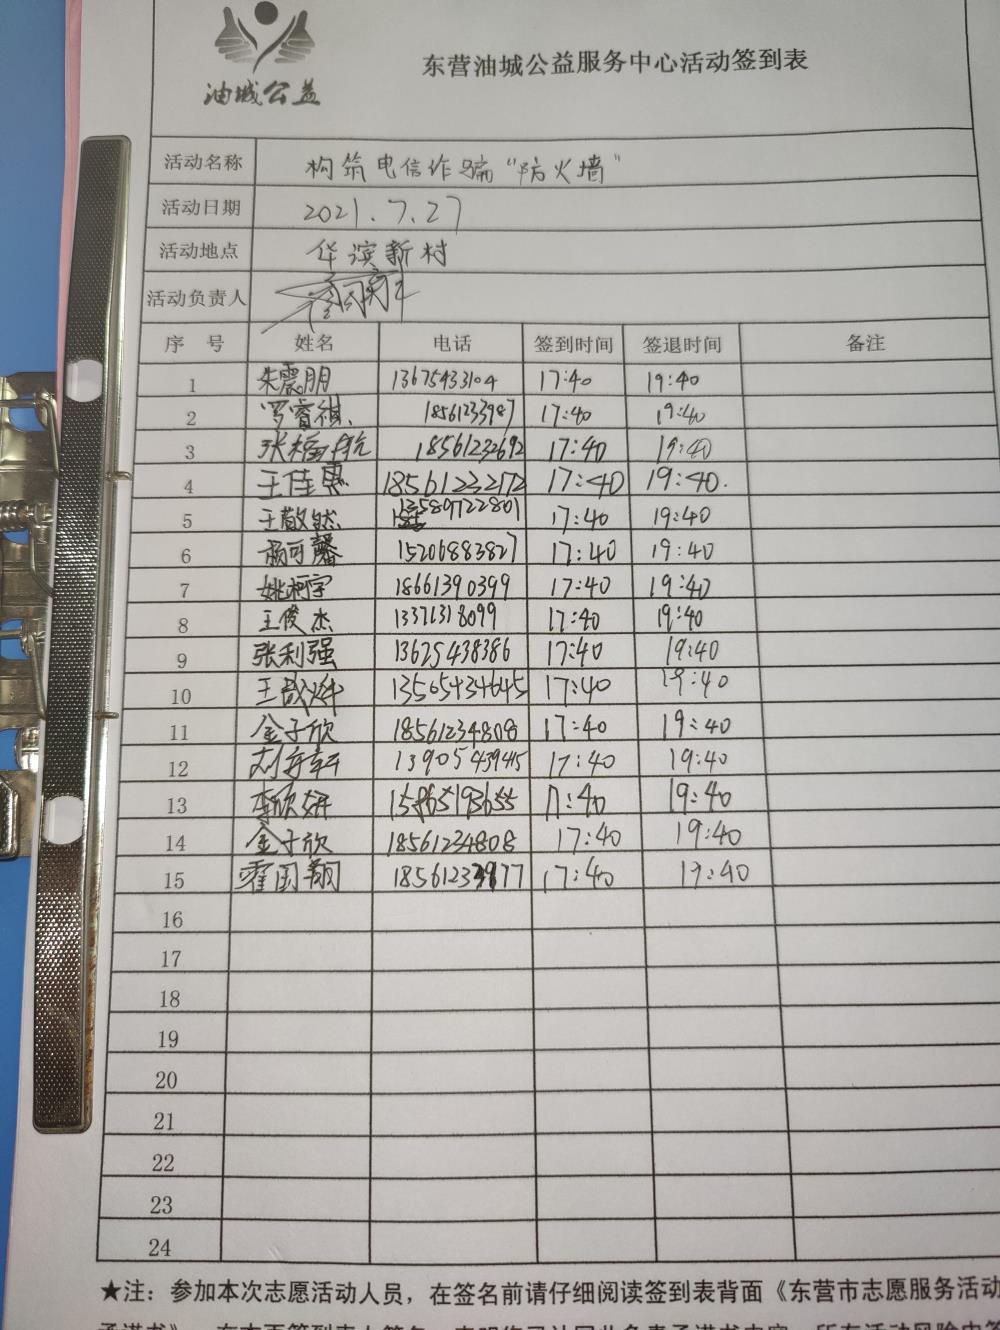 油城公益
东营油城公益服务中心活动签到表
活动名称 构筑电信诈骗“防火墙”
活动日期 2021.7.27
活动地点 华滨新村
活动负责人
序 号 姓名 电话 签到时间 签退时间 备注
1 朱震朋 13675433104 17:40 19:40
2 罗睿祺 18561233987 17:40 19:40
3 张 航 18561232692 17:40 19:40
4 王佳惠 18561232172 17:40 19:40.
5 王敬然 13589722801 17:40 19:40
6 杨可馨 15206883827 17:40 19:40
7 姚柯宇 18661390399 17:40 19:40
8 王俊杰 13371318099 17:40 19:40
9 张利强 13625438386 17:40 19:40
10 王 13565434645 17:40 19:40
11 金子欣 18561234808 17:40 19:40
12 刘宇轩 13905439415 17:40 19:40
13 李欣妍 15865193655 17:40 19:40
14 金子欣 18561234808 17:40 19:40
15 霍国翔 18561233977 17:40 19:40
16
17
18
19
20
21
22
23
24
★注：参加本次志愿活动人员，在签名前请仔细阅读签到表背面《东营市志愿服务活动